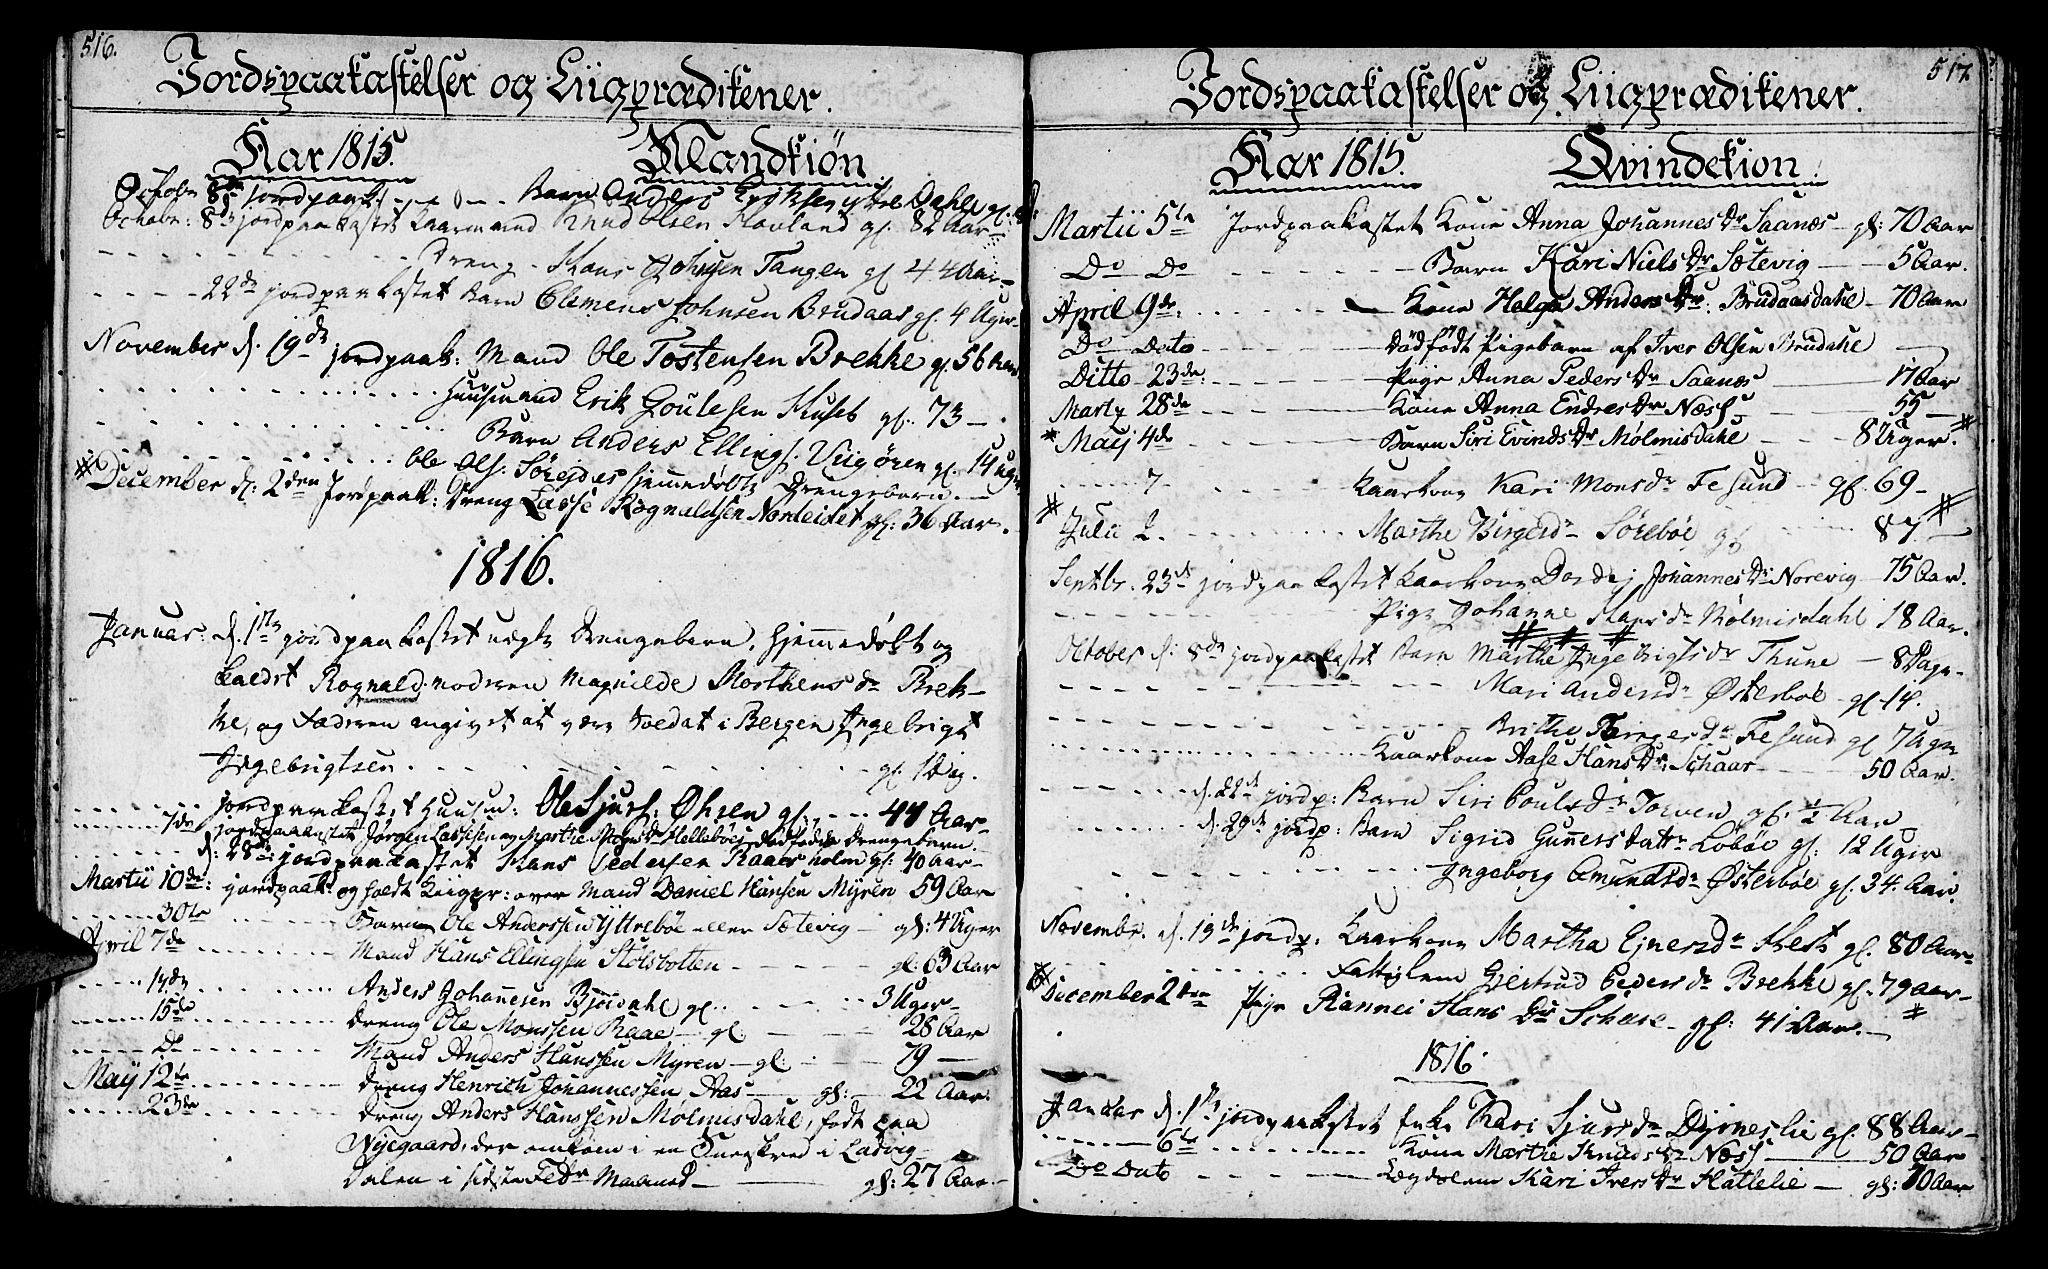 516.
Jordspaakastelser og Liigprædikener.
Aar 1815. Mandkiøn.
Octobr 8de jordpaak: Barn Anders Eriksen ytre Dahle gl:
Octobr: 8de jordpaakastet Kaarmand Knud Olsen Hovland gl. 82 Aar
Dreng Hans Johnsen Tangen gl 44 Aar
22de jordpaakastet Barn Clemens Johnsen Brudaas gl. 4 Uger
November d. 19de jordpaak: Mand Ole Tostensen Brekke gl. 56 Aar
Huusmand Erik Poulesen Huseb gl. 73
Barn Anders Ellings. Viigøren gl. 14 uger
Ole Ols. Sørejdes hjemmedøbte Drengebarn.
December d: 2den Jordpaak: Dreng Lasse Rognaldsen Nordeidet gl: 36 Aar.
1816.
Januar: d. 1ste jordpaakastet uegte Drengebarn, hjemmedøbt og
kaldet Rognald. moderen Magnilde Morthens dr Brek-
ke, og Faderen angivet at være Soldat i Bergen Ingebrigt
Ingebrigtsen gl. 1 Dag.
7de jordpaakastet Huusm: Ole Sjurs: Øhren gl. 44 Aar
jordpaakastet Jørgen Lassesen og Marthe Mons Dr Hellebøes dødfødde Drengebarn.
d: 28de jordpaakastet Hans Pedersen Raaesholm gl: 40 Aar
Martii 10de: jordpaak: og holdt Liigpr: over Mand Daniel Hansen Myren 59 Aar
30te Barn Ole Anderssen Yttrebøe eller Sætevig gl: 4 Uger
April 7de Mand Hans Ellingsen Stølsbotten gl: 63 Aar
14de Anders Johannesen Bjordahl gl. 3 Uger
15de Dreng Ole Monssen Raae gl 28 Aar
Do Mand Anders Hanssen Myren gl: 79
May 12te Dreng Henrich Johannessen Aas gl: 22 Aar.
23de Dreng Anders Hanssen Mølmisdahl, født paa
Nyegaard, der omkom i en Sneeskred i Ladvig-
Dalen i sidste Febr Maaned gl: 27 Aar
517.
Jordspaakastelser og Liigprædikener.
Aar 1815. Qvindekion.
Martii 5te Jordpaakastet Kone Anna Johannes Dr Saanæs gl: 70 Aar
Do Do Barn Kari Niels Dr Sætevig 5 Aar.
April 9de Kone Helga Anders Dr. Brudaasdahl 70 Aar
Do Dato Dødfødt Pigebarn af Iver Olsen Brudahl
Ditto 23de Pige Anna Peders Dr Saanæs 17 Aar
Martz 28de Kone Anna Endres Dr Næss 55
May 4de Barn Siri Evinds Dr Mølmisdahl 8 Uger.
7 Kaarkone Kari Mons dr Fesund gl. 69
Julii 2. Marthe Birgers dr Sørebøe gl 87
Septbr. 23de jordpaakastet Kaarkone Dordej Johannes Dr Norevig 75 Aar.
Pige Johanne Hans dr Mølmisdahl 18 Aar.
October d: 8de jordpaakastet Barn Marthe Ingebrigts dr Thune 8 Dage
Mari Anders dr Østerbøe gl. 14.
Brithe Birges dr Fesund gl 7 Uger
Kaarkone Aase Hans Dr. Schaar 50 Aar.
d. 22de jordp: Barn Siri Pouls dr Torven gl. ½ Aar
d. 29de jordp: Barn Sigrid Gunners datr Lobøe gl: 12 Uger
Ingeborg Amunds dr Østerbøe gl. 34. Aar.
Novembr. d. 19de jordp. Kaarkone Martha Ejners dr Hest gl. 80 Aar
Fattiglem Gjertrud Peders dr Brekke gl. 79 Aar
December 2den Pige Rannei Hans Dr Schaar gl: 41 Aar.
1816.
Januar d. 1ste jordpaakastet Enke Kari Sjurs dr Dyrneslie gl. 88 Aar
6te Kone Marthe Knuds Dr Næss 50 Aar
Do Dato Lægdslem Kari Ivers Dr Hattelie gl: 70 Aar